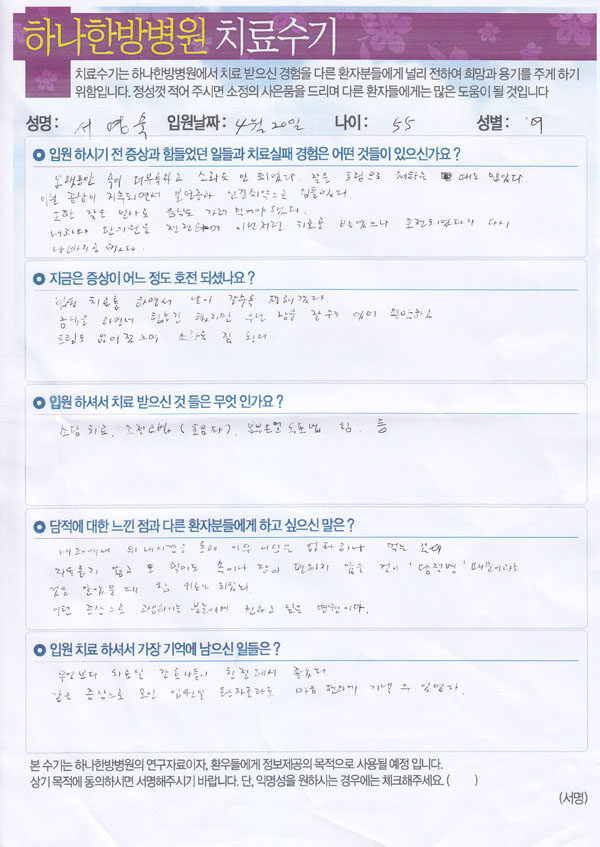 하나한방병원 치료수기
치료수기는 하나한방병원에서 치료 받으신 경험을 다른 환자분들에게 널리 전하여 희망과 용기를 주게 하기
위함입니다. 정성껏 적어 주시면 소정의 사은품을 드리며 다른 환자들에게는 많은 도움이 될 것입니다
성명: 서 입원날짜: 4월 20일 나이: 55 성별: 여
입원 하시기 전 증상과 힘들었던 일들과 치료실패 경험은 어떤 것들이 있으신가요?
오랫동안 속이 더부룩하고 소화도 안 되었다. 잦은 트림으로 체하는 때도 많았다.
이런 증상이 지속되면서 불면증과 신경쇠약으로 힘들었다.
또한 잦은 설사로 음식도 가려 먹어야 했다.
내과와 한의원을 전전하며 이런저런 치료를 받았으나 호전되었다가 다시
나빠지곤 했다.
지금은 증상이 어느 정도 호전 되셨나요?
입원 치료를 하면서 날이 갈수록 편해졌다
금식을 하면서 힘들긴 했지만 우선 잠을 잘 수 있어 신기하고
트림도 없어졌으며 소화도 잘 된다.
입원 하셔서 치료 받으신 것 들은 무엇 인가요?
소담 치료, 소적요법 (초음파), 침, 뜸
담적에 대한 느낀 점과 다른 환자분들에게 하고 싶으신 말은?
내과에서 위내시경을 통해 아무 이상은 없다하나 먹는 것이
자유롭지 않고 또 먹어도 속이나 장이 편하지 않은 것이 '담적병' 때문이라는
것을 알았을 때 참 되었다.
이런 증상으로 고생하시는 분들에게 권하고 싶은 병원이다.
입원 치료 하셔서 가장 기억에 남으신 일들은?
무엇보다 치료실 간호사들이 친절해서 좋았다.
같은 증상으로 모인 입원실 환자들과도 마음 편하게 지낼 수 있었다.
본 수기는 하나한방병원의 연구자료이자, 환우들에게 정보제공의 목적으로 사용될 예정 입니다.
상기 목적에 동의하시면 서명해주시기 바랍니다. 단, 익명성을 원하시는 경우에는 체크해주세요. ( )
(서명)